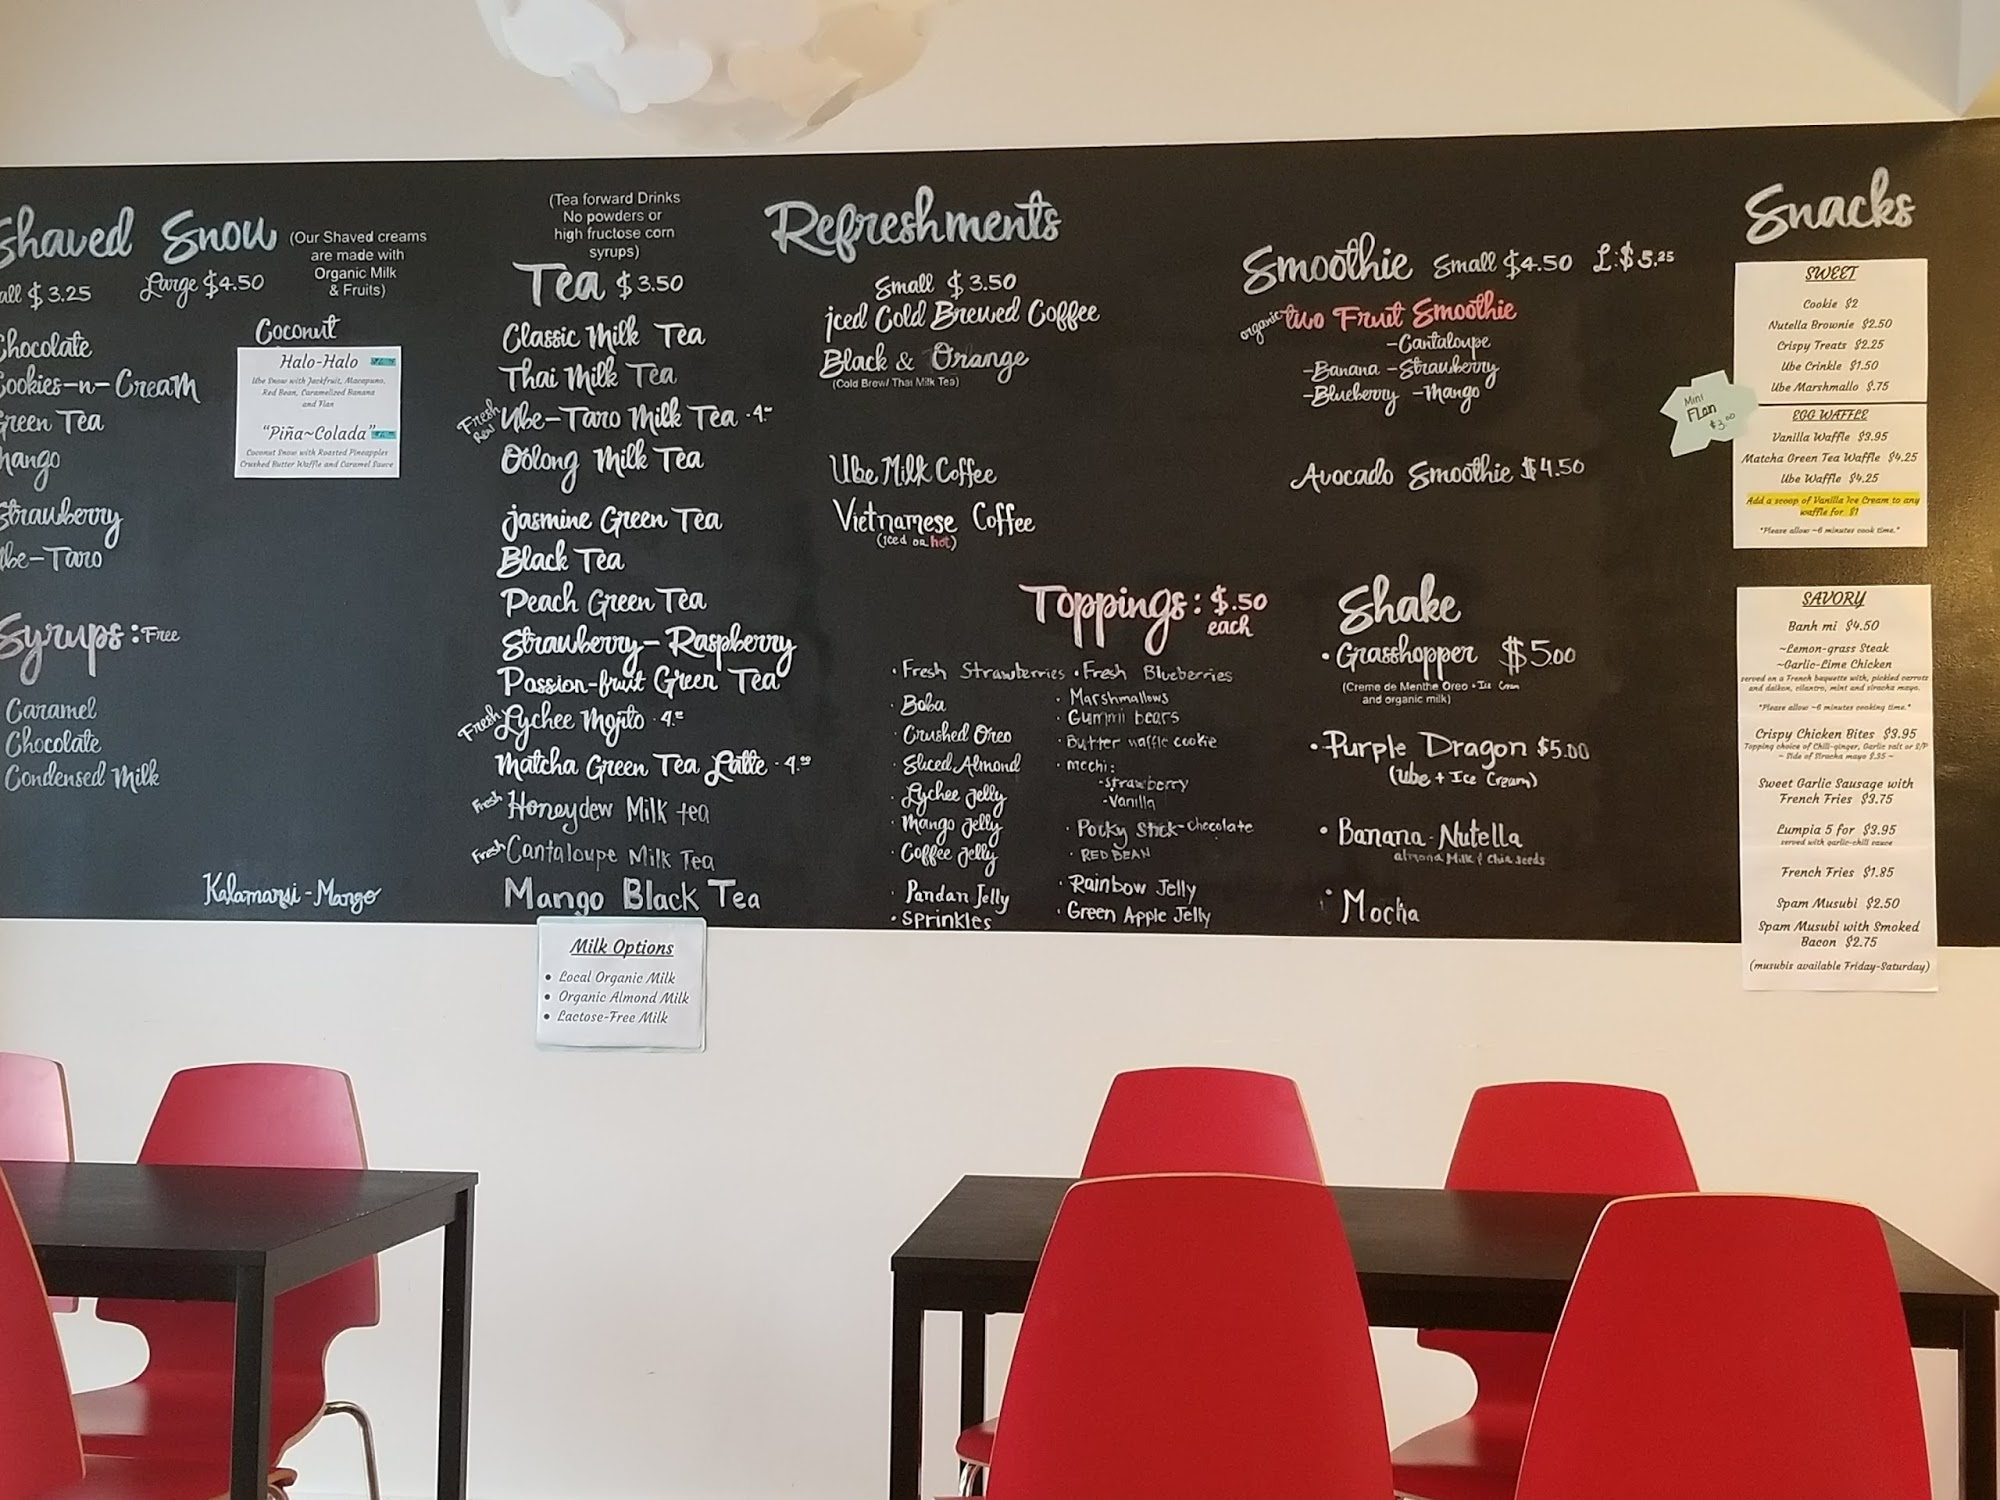 Shaved Snow
(Our Shaved creams
are made with
Organic Milk
& Fruits)
all $3.25
Large $4.50
Chocolate
Cookies-n-Cream
Green Tea
Mango
Strawberry
Ube-Taro
Coconut
Halo-Halo
Ube Snow with Jackfruit, Macapuno,
Red Bean, Caramelized Banana
and Flan
"Piña~Colada"
Coconut Snow with Roasted Pineapples
Crushed Butter Waffle and Caramel Sauce
Syrups: Free
Caramel
Chocolate
Condensed Milk
Kalamansi-Mango
(Tea forward Drinks
No powders or
high fructose corn
syrups)
Tea $3.50
Classic Milk Tea
Thai Milk Tea
Fresh Ube-Taro Milk Tea
Oolong Milk Tea
Jasmine Green Tea
Black Tea
Peach Green Tea
Strawberry-Raspberry
Passion-fruit Green Tea
Fresh Lychee Mojito
Matcha Green Tea Latte
Fresh Honeydew Milk tea
Fresh Cantaloupe Milk Tea
Mango Black Tea
Milk Options
• Local Organic Milk
• Organic Almond Milk
• Lactose-Free Milk
Refreshments
Small $3.50
iced Cold Brewed Coffee
Black & Orange
(Cold Brew/ Thai Milk Tea)
Ube Milk Coffee
Vietnamese Coffee
(iced or hot)
Toppings: $.50
each
• Fresh Strawberries
• Boba
• Crushed Oreo
• Sliced Almond
• Lychee Jelly
• Mango Jelly
• Coffee Jelly
• Pandan Jelly
• Sprinkles
• Fresh Blueberries
• Marshmallows
• Gummi bears
• Butter waffle cookie
• mochi:
-strawberry
-Vanilla
• Pocky Stick-chocolate
• RED BEAN
• Rainbow Jelly
• Green Apple Jelly
Smoothie Small $4.50 L:$5.25
organic two Fruit Smoothie
-Cantaloupe
-Banana -Strawberry
-Blueberry -Mango
Avocado Smoothie $4.50
Shake
• Grasshopper $5.00
(Creme de Menthe Oreo + Ice Cream
and organic milk)
• Purple Dragon $5.00
(ube + Ice Cream)
• Banana-Nutella
almond Milk & Chia seeds
• Mocha
Snacks
SWEET
Cookie $2
Nutella Brownie $2.50
Crispy Treats $2.25
Ube Crinkle $1.50
Ube Marshmallo $.75
Mini
Flan
$3.00
EGG WAFFLE
Vanilla Waffle $3.95
Matcha Green Tea Waffle $4.25
Ube Waffle $4.25
Add a scoop of Vanilla Ice Cream to any
waffle for $1
*Please allow ~6 minutes cook time.*
SAVORY
Banh mi $4.50
~Lemon-grass Steak
~Garlic-Lime Chicken
served on a French baguette with, pickled carrots
and daikon, cilantro, mint and siracha mayo.
*Please allow ~6 minutes cooking time.*
Crispy Chicken Bites $3.95
Topping choice of Chili-ginger, Garlic salt or S/P
~ Side of Siracha mayo $.35 ~
Sweet Garlic Sausage with
French Fries $3.75
Lumpia 5 for $3.95
served with garlic-chili sauce
French Fries $1.85
Spam Musubi $2.50
Spam Musubi with Smoked
Bacon $2.75
(musubis available Friday-Saturday)